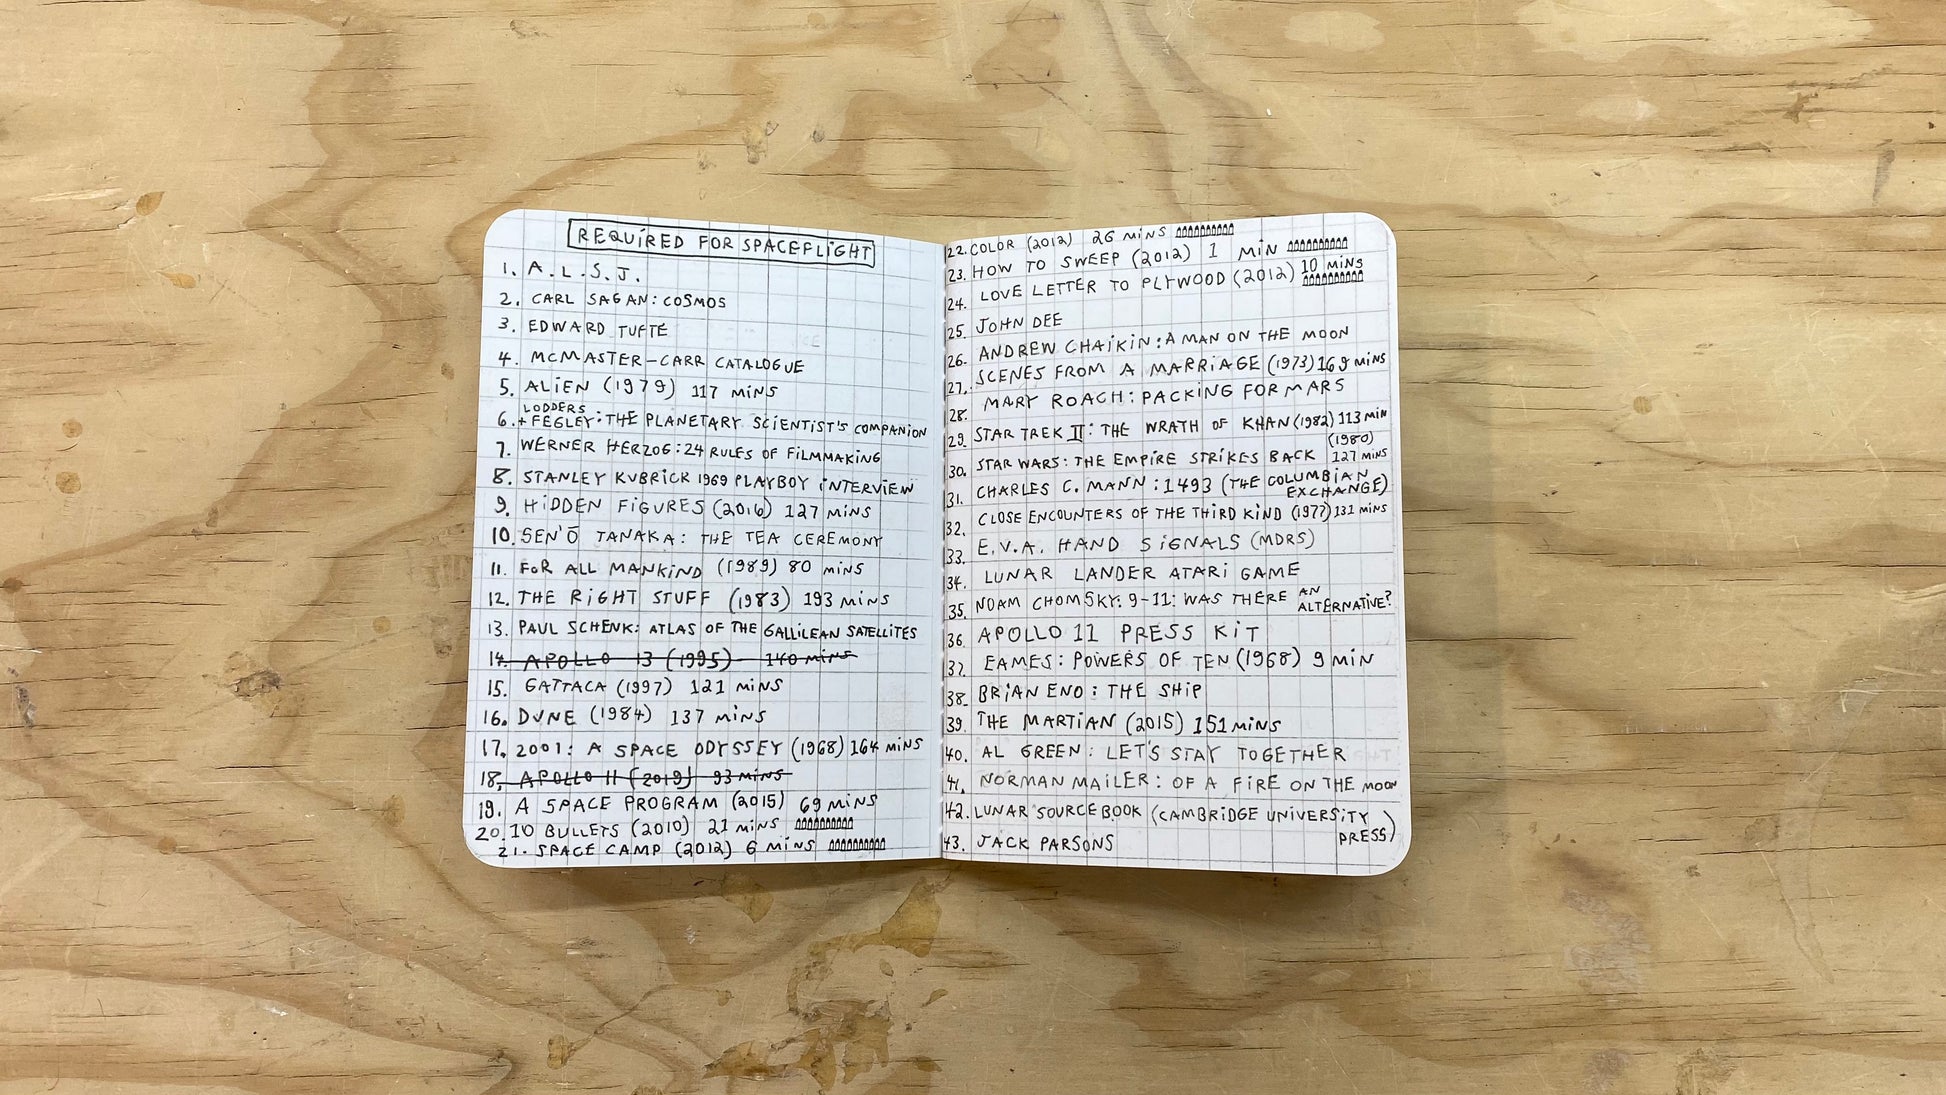 REQUIRED FOR SPACEFLIGHT
1. A.L.S.J.
2. CARL SAGAN: COSMOS
3. EDWARD TUFTE
4. MCMASTER-CARR CATALOGUE
5. ALIEN (1979) 117 MINS
6. LODDERS + FEGLEY: THE PLANETARY SCIENTIST'S COMPANION
7. WERNER HERZOG: 24 RULES OF FILMMAKING
8. STANLEY KUBRICK 1969 PLAYBOY INTERVIEW
9. HIDDEN FIGURES (2016) 127 MINS
10. SEN'Ō TANAKA: THE TEA CEREMONY
11. FOR ALL MANKIND (1989) 80 MINS
12. THE RIGHT STUFF (1983) 193 MINS
13. PAUL SCHENK: ATLAS OF THE GALLILEAN SATELLITES
14. APOLLO 13 (1995) 140 MINS
15. GATTACA (1997) 121 MINS
16. DUNE (1984) 137 MINS
17. 2001: A SPACE ODYSSEY (1968) 164 MINS
18. APOLLO 11 (2019) 93 MINS
19. A SPACE PROGRAM (2015) 69 MINS
20. 10 BULLETS (2010) 21 MINS
21. SPACE CAMP (2012) 6 MINS
22. COLOR (2012) 26 MINS
23. HOW TO SWEEP (2012) 1 MIN
24. LOVE LETTER TO PLYWOOD (2012) 10 MINS
25. JOHN DEE
26. ANDREW CHAIKIN: A MAN ON THE MOON
27. SCENES FROM A MARRIAGE (1973) 169 MINS
28. MARY ROACH: PACKING FOR MARS
29. STAR TREK II: THE WRATH OF KHAN (1982) 113 MIN
30. STAR WARS: THE EMPIRE STRIKES BACK (1980) 127 MINS
31. CHARLES C. MANN: 1493 (THE COLUMBIAN EXCHANGE)
32. CLOSE ENCOUNTERS OF THE THIRD KIND (1977) 131 MINS
33. E.V.A. HAND SIGNALS (MDRS)
34. LUNAR LANDER ATARI GAME
35. NOAM CHOMSKY: 9-11: WAS THERE AN ALTERNATIVE?
36 APOLLO 11 PRESS KIT
37. EAMES: POWERS OF TEN (1968) 9 MIN
38. BRIAN ENO: THE SHIP
39. THE MARTIAN (2015) 151 MINS
40. AL GREEN: LET'S STAY TOGETHER
41. NORMAN MAILER: OF A FIRE ON THE MOON
42. LUNAR SOURCEBOOK (CAMBRIDGE UNIVERSITY PRESS)
43. JACK PARSONS